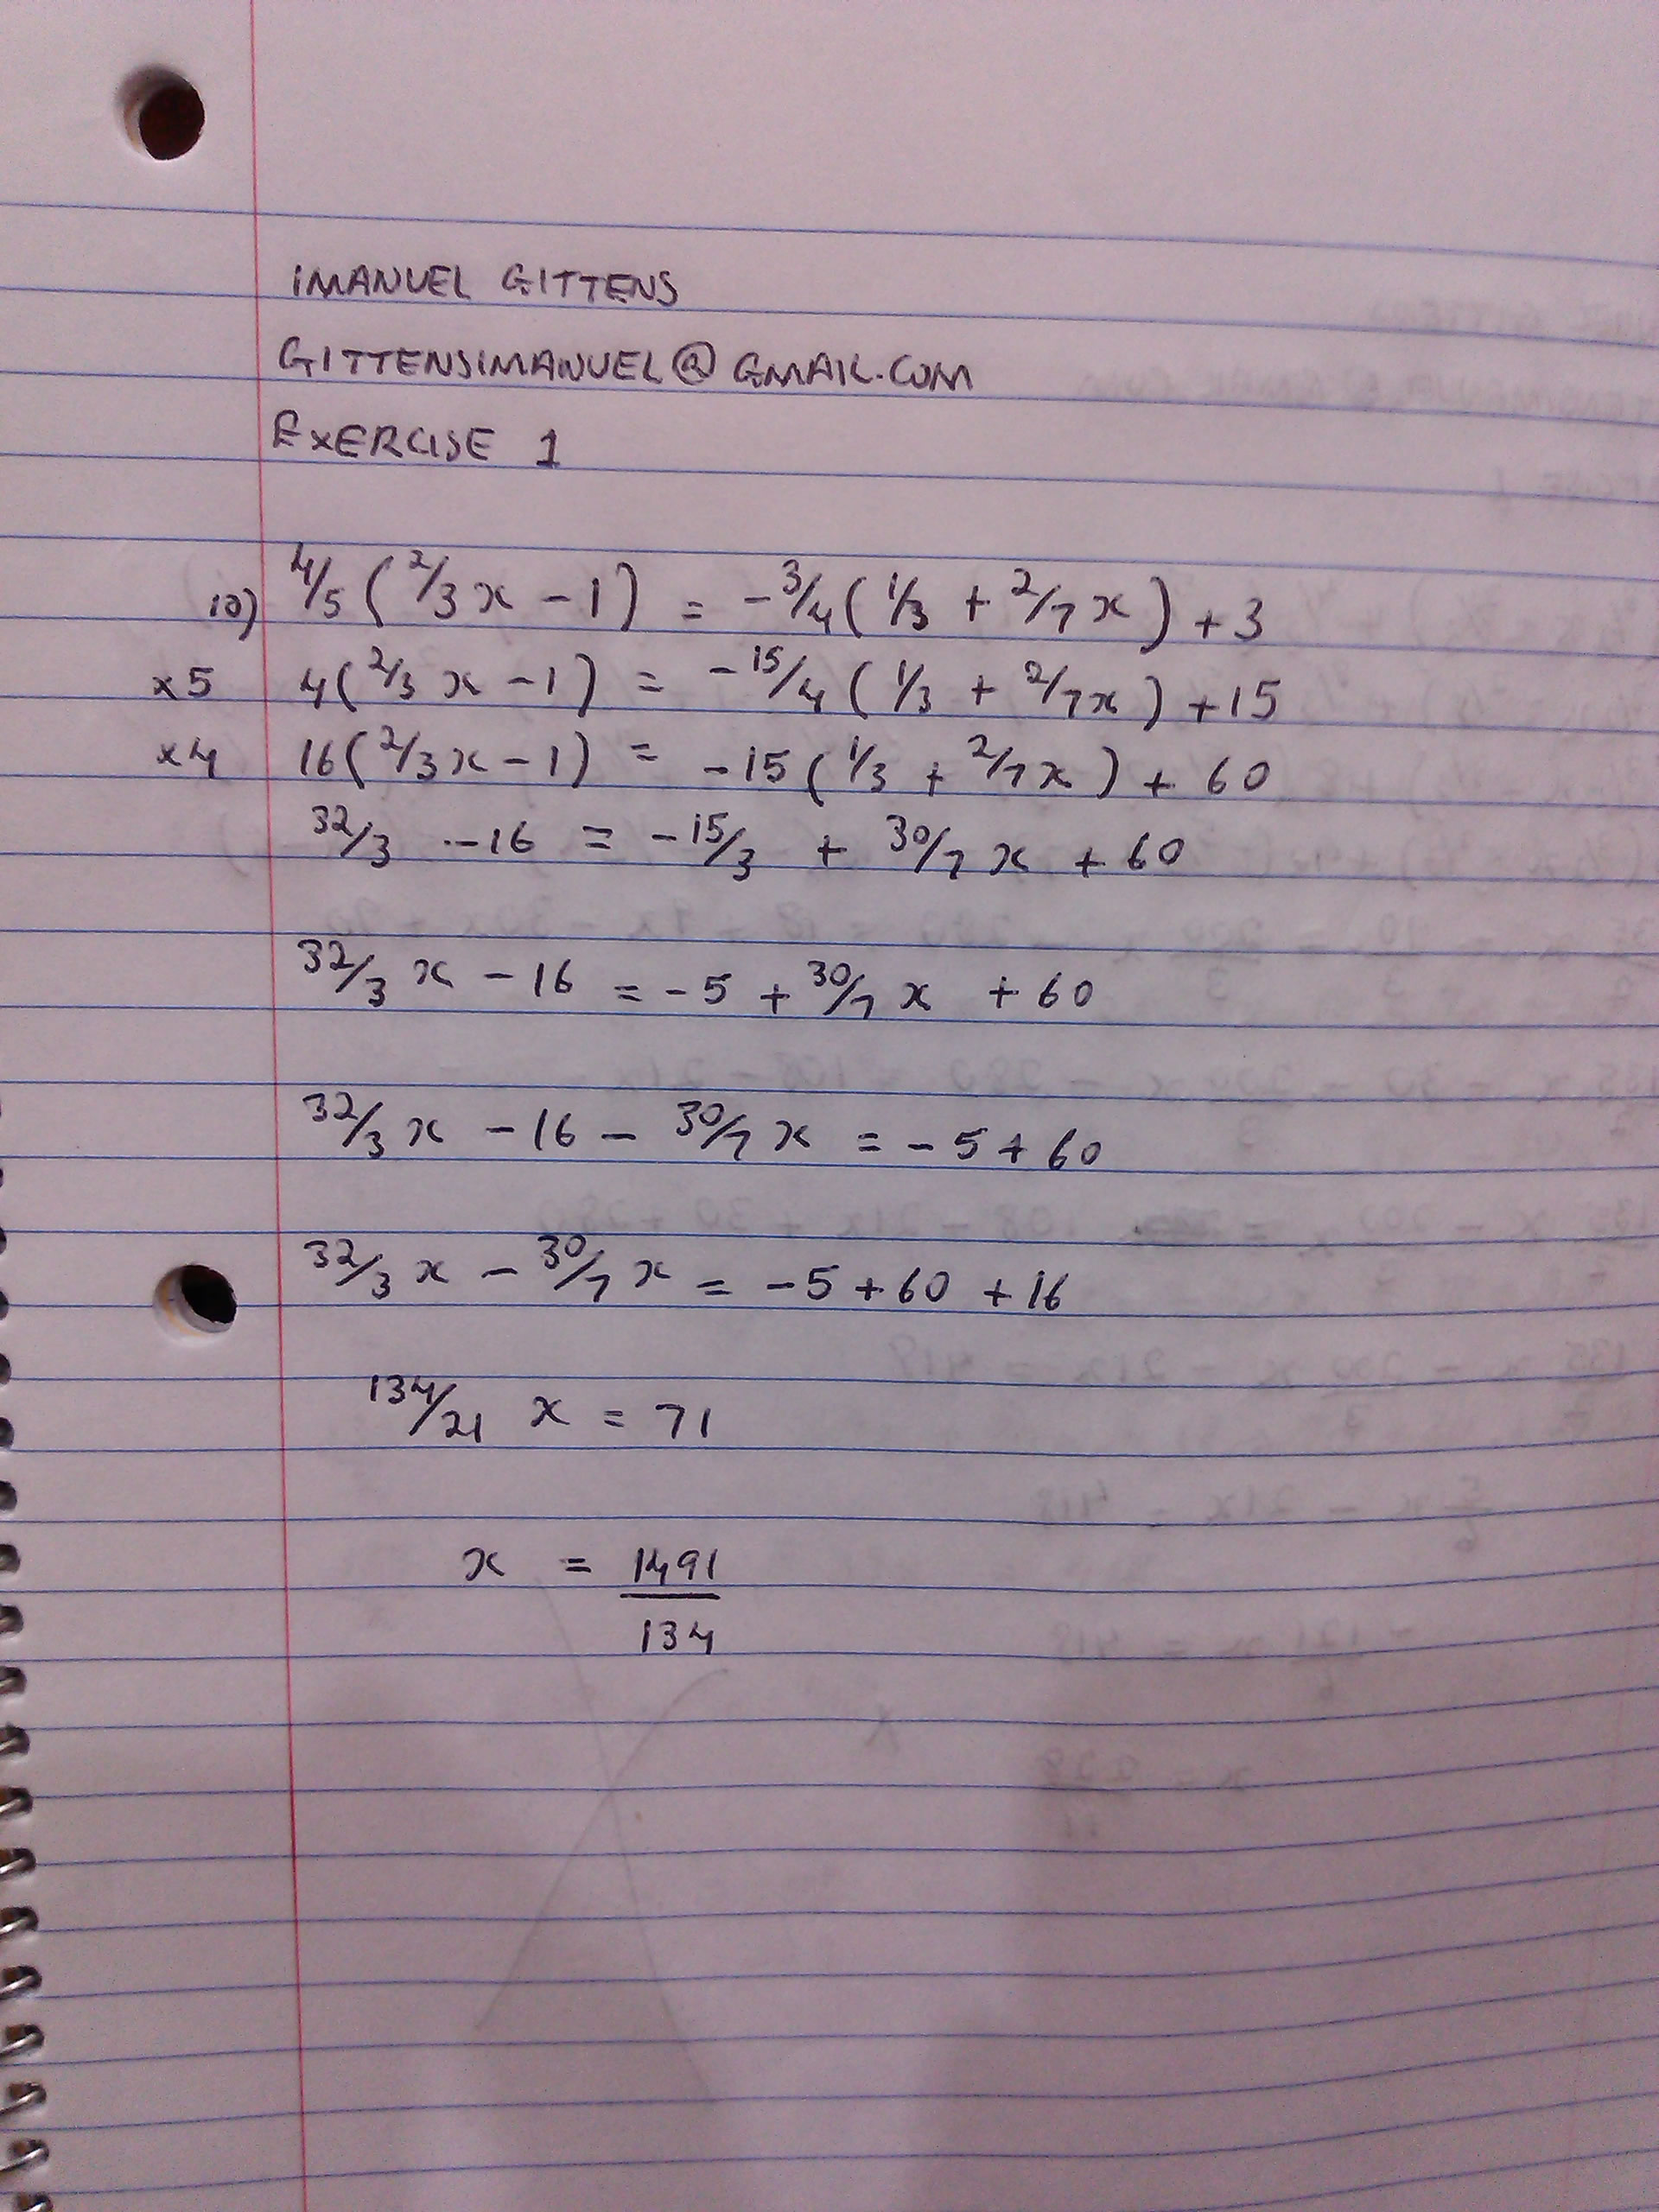 IMANUEL GITTENS
GITTENSIMANUEL@GMAIL.COM
EXERCISE 1
10) 4/5 (2/3 x - 1) = -3/4 (1/3 + 2/7 x) + 3
x5 4(2/3 x - 1) = -15/4 (1/3 + 2/7 x) + 15
x4 16(2/3 x - 1) = -15(1/3 + 2/7 x) + 60
32/3 - 16 = -15/3 + 30/7 x + 60
32/3 x - 16 = -5 + 30/7 x + 60
32/3 x - 16 - 30/7 x = -5 + 60
32/3 x - 30/7 x = -5 + 60 + 16
134/21 x = 71
x = 1491
134